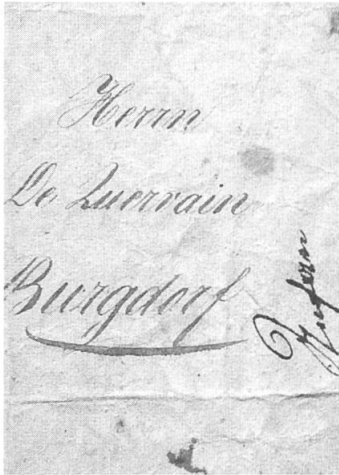 Herrn
De Quervain
Burgdorf